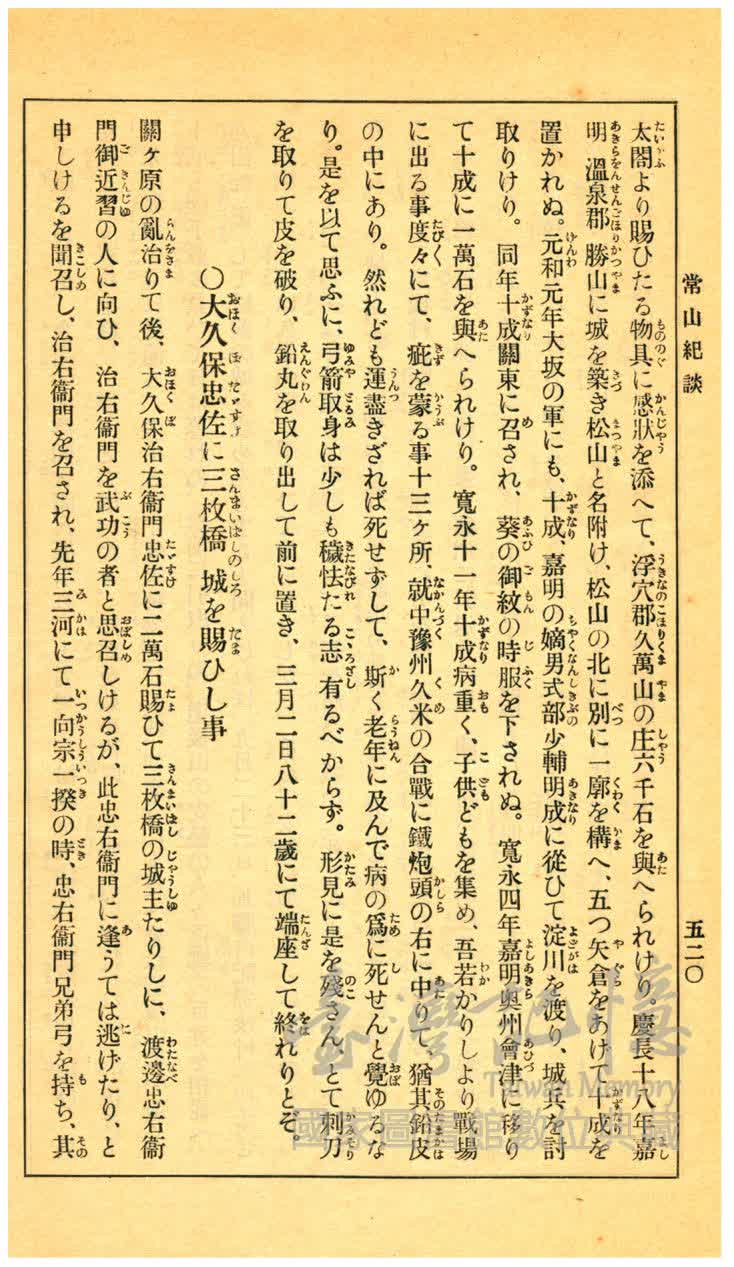 常山紀談
五二〇
太閤より賜ひたる物具に感狀を添へて、浮穴郡久萬山の庄六千石を與へられけり。慶長十八年嘉
明溫泉郡勝山に城を築き松山と名附け、松山の北に別に一廓を構へ、五つ矢倉をあげて十成を
置かれぬ。元和元年大坂の軍にも、十成、嘉明の嫡男式部少輔明成に從ひて淀川を渡り、城兵を討
取りけり。同年十成關東に召され、葵の御紋の時服を下されぬ。寬永四年嘉明奧州會津に移り
て十成に一萬石を與へられけり。寬永十一年十成病重く、子供どもを集め、吾若かりしより戰場
に出る事度々にて、疵を蒙る事十三ヶ所、就中豫州久米の合戰に鐵炮頭の右に中りて、猶其鉛皮
の中にあり。然れども運盡きざれば死せずして、斯く老年に及んで病の爲に死せんと覺ゆるな
り。是を以て思ふに、弓箭取身は少しも穢怯たる志有るべからず。形見に是を殘さん、とて剃刀
を取りて皮を破り、鉛丸を取り出して前に置き、三月二日八十二歲にて端座して終れりとぞ。
〇大久保忠佐に三枚橋城を賜ひし事
關ヶ原の亂治りて後、大久保治右衞門忠佐に二萬石賜ひて三枚橋の城主たりしに、渡邊忠右衞
門御近習の人に向ひ、治右衞門を武功の者と思召しけるが、此忠右衞門に逢うては逃げたり、と
申しけるを聞召し、治右衞門を召され、先年三河にて一向宗一揆の時、忠右衞門兄弟弓を持ち、其
臺灣記憶
Taiwan Memory
國家圖書館數位典藏